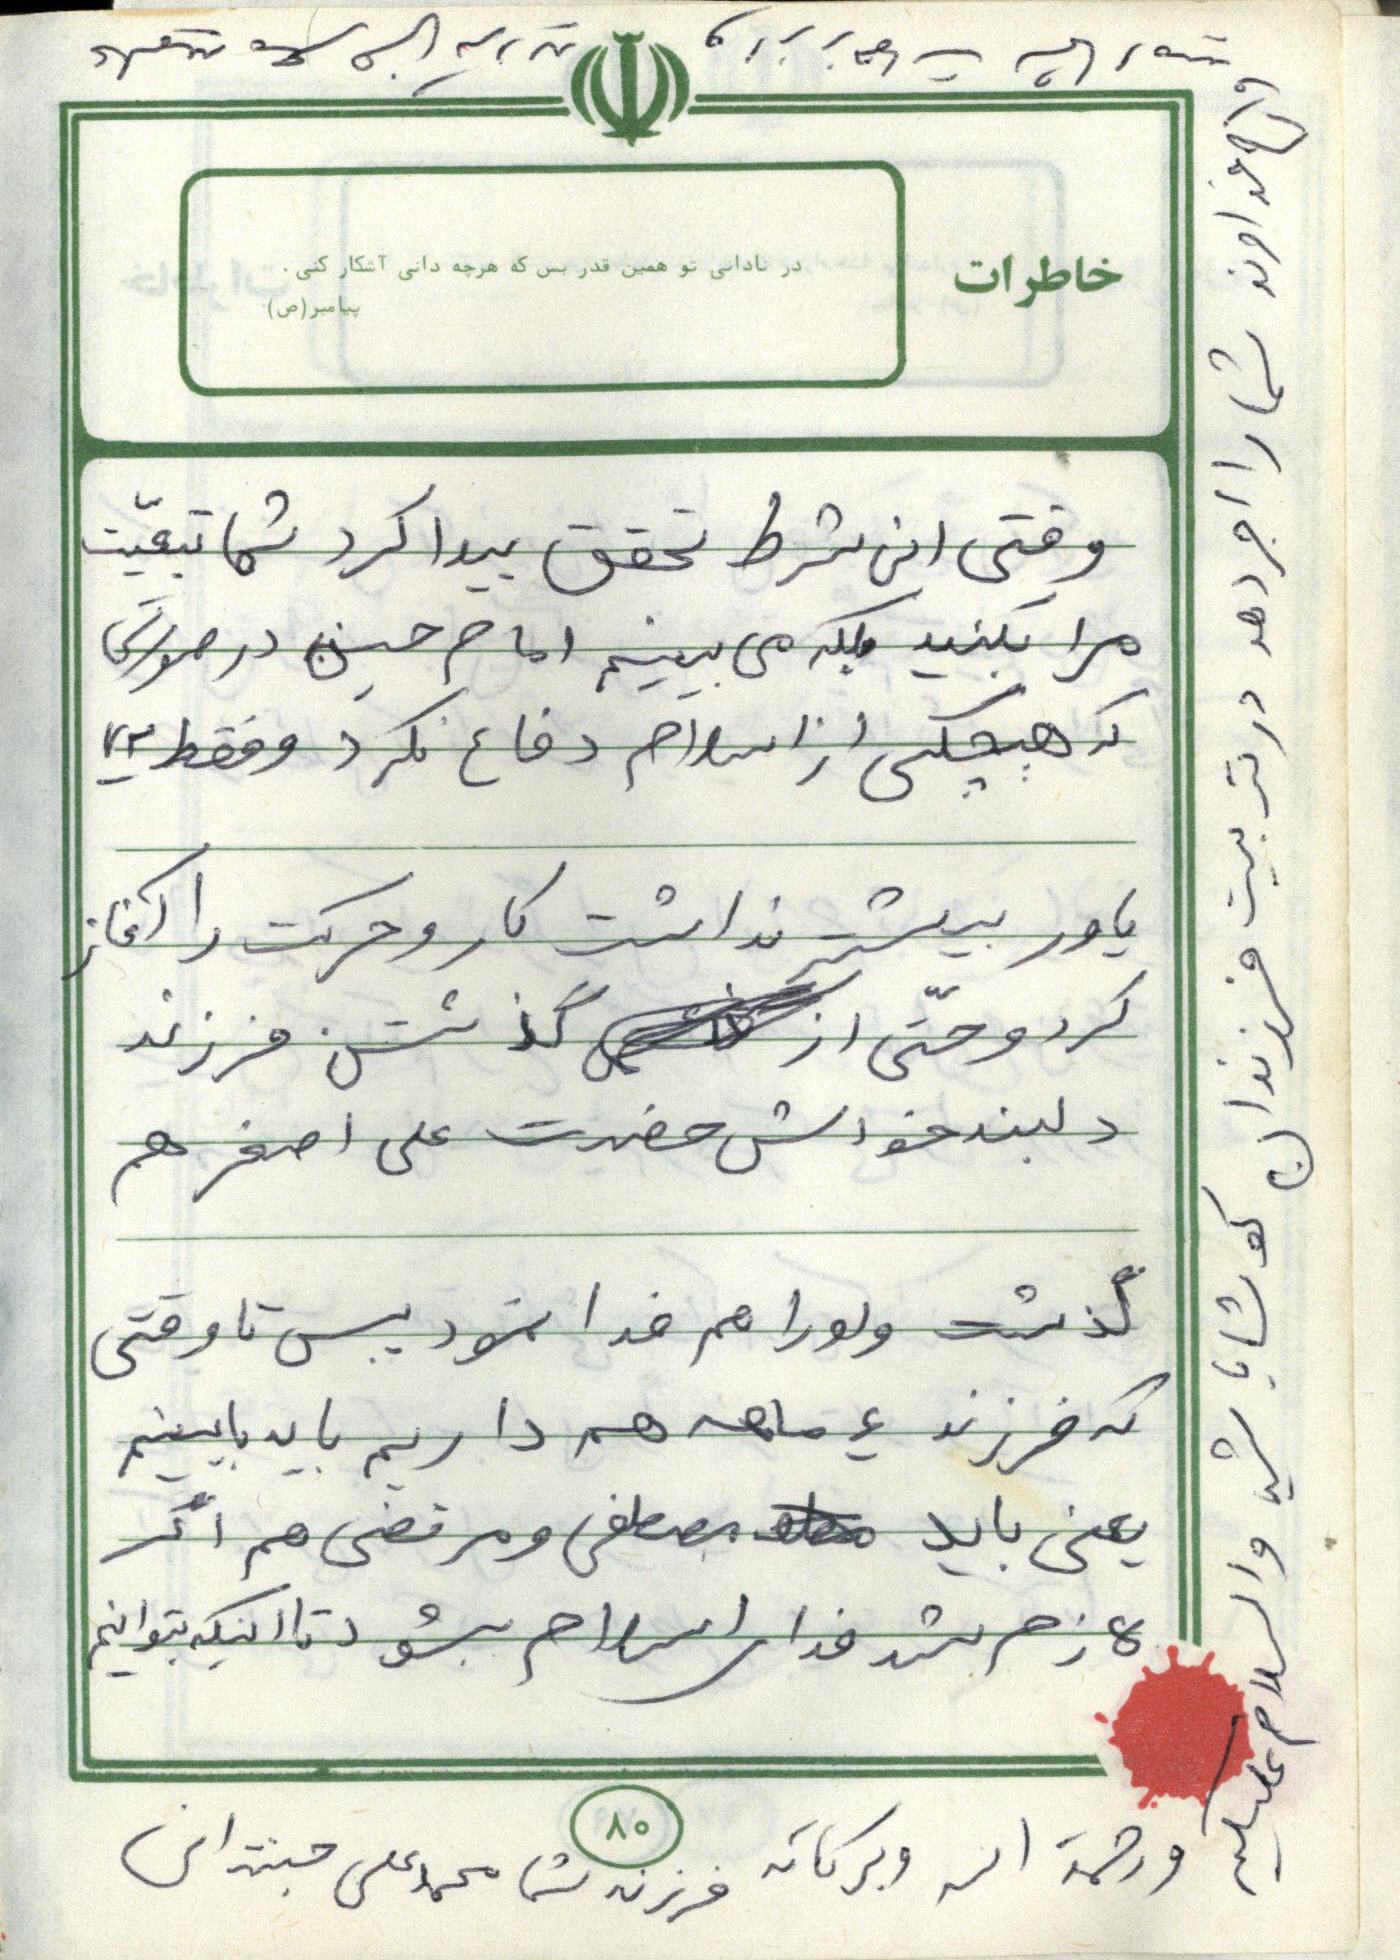 خاطرات
در نادانی تو همین قدر بس که هرچه دانی آشکار کنی.
پیامبر(ص)
وقتی این شرط تحقق پیدا کرد شما تبعیّت
مرا بکنید بلکه می بینیم امام حسین در صورتی
که هیچکس از اسلام دفاع نکرد و فقط ۷۲
یاور بیشتر نداشت کار و حرکت را آغاز
کرد و حتّی از گذشتن فرزند
دلبند خوانش حضرت علی اصغر هم
گذشت و او را هم فدا نمود پس تا وقتی
که فرزند ۶ ماهه هم داریم باید بایستیم
یعنی باید مصطفی و مرتضی هم اگر
لازم شد فدای اسلام بشود تا اینکه بتوانیم
خداوند شما را اجر دهد در تربیت فرزندان کوشا باشید والسلام علیکم
و رحمة الله و برکاته فرزند شما محمدعلی
۸۰